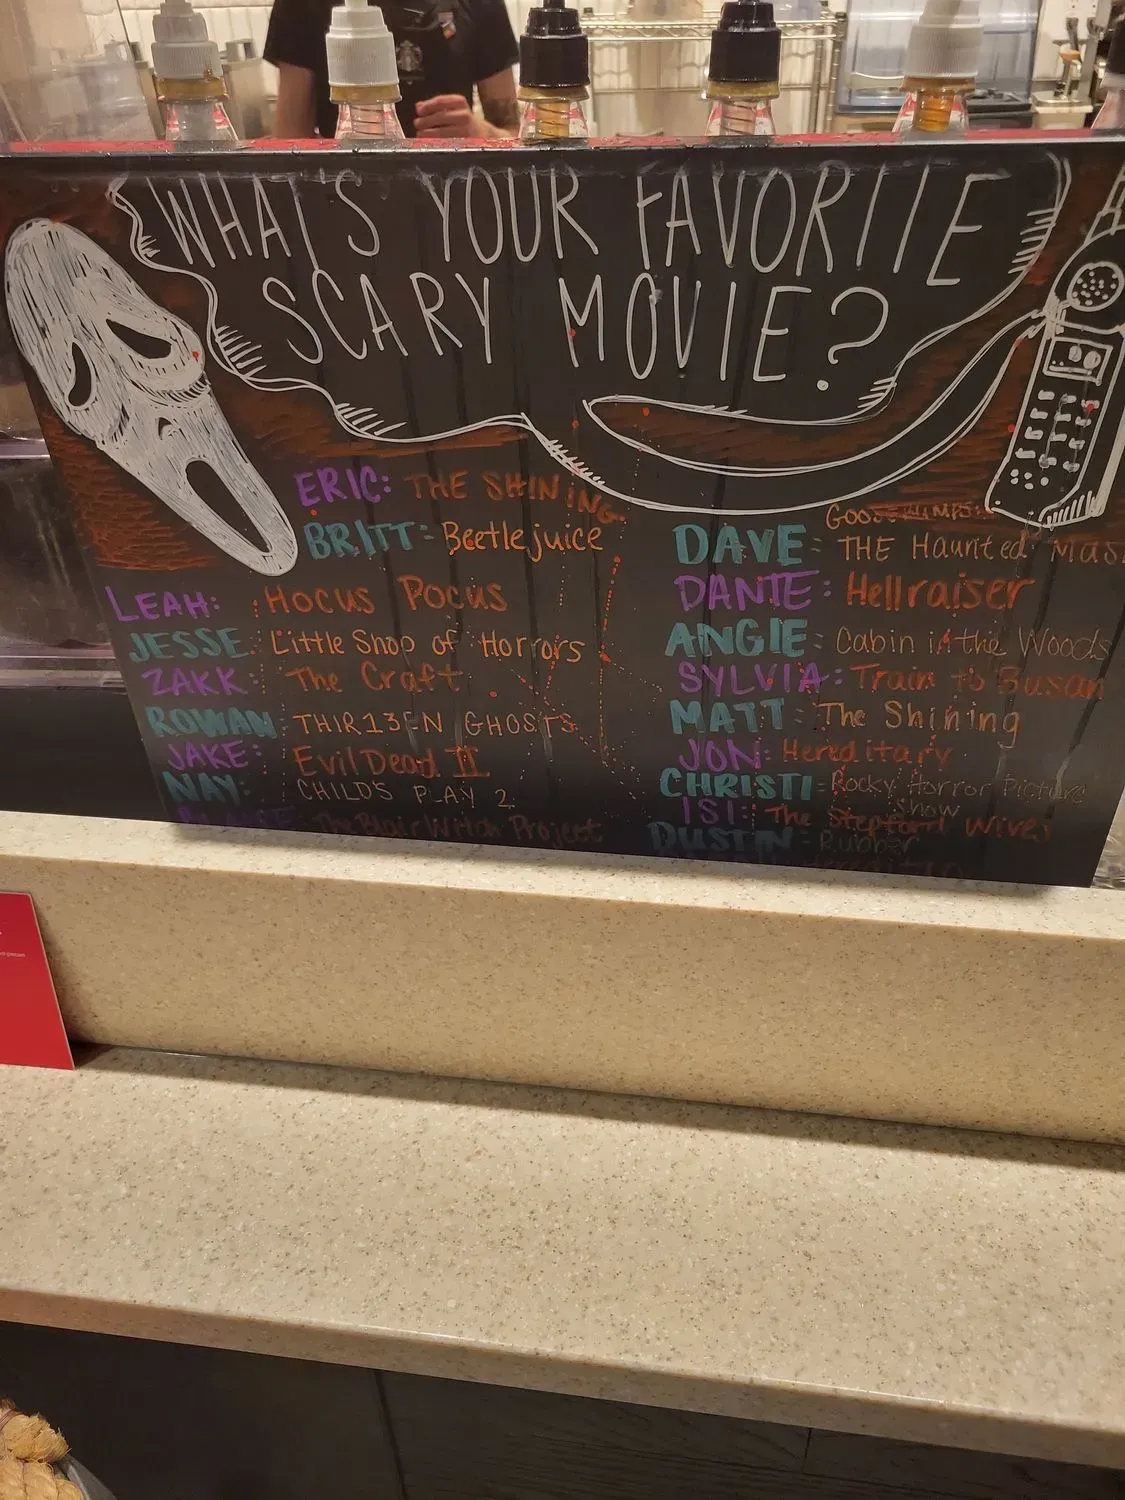 WHAT'S YOUR FAVORITE
SCARY MOVIE?
ERIC: THE SHINING
BRITT: Beetlejuice
LEAH: HOCUS POCUS
JESSE: Little Shop of Horrors
ZAKK: The Craft
ROWAN: THIR13EN GHOSTS
JAKE: Evil Dead II
NAY: CHILD'S PLAY 2
The Blair Witch Project
GOOSEBUMPS:
DAVE: THE Haunted Mas
DANTE: Hellraiser
ANGIE: Cabin in the Woods
SYLVIA: Train to Busan
MATT: The Shining
JON: Hereditary
CHRISTI: Rocky Horror Picture
Show
ISI: The Stepford Wives
DUSTIN: Rubber
Hereditary